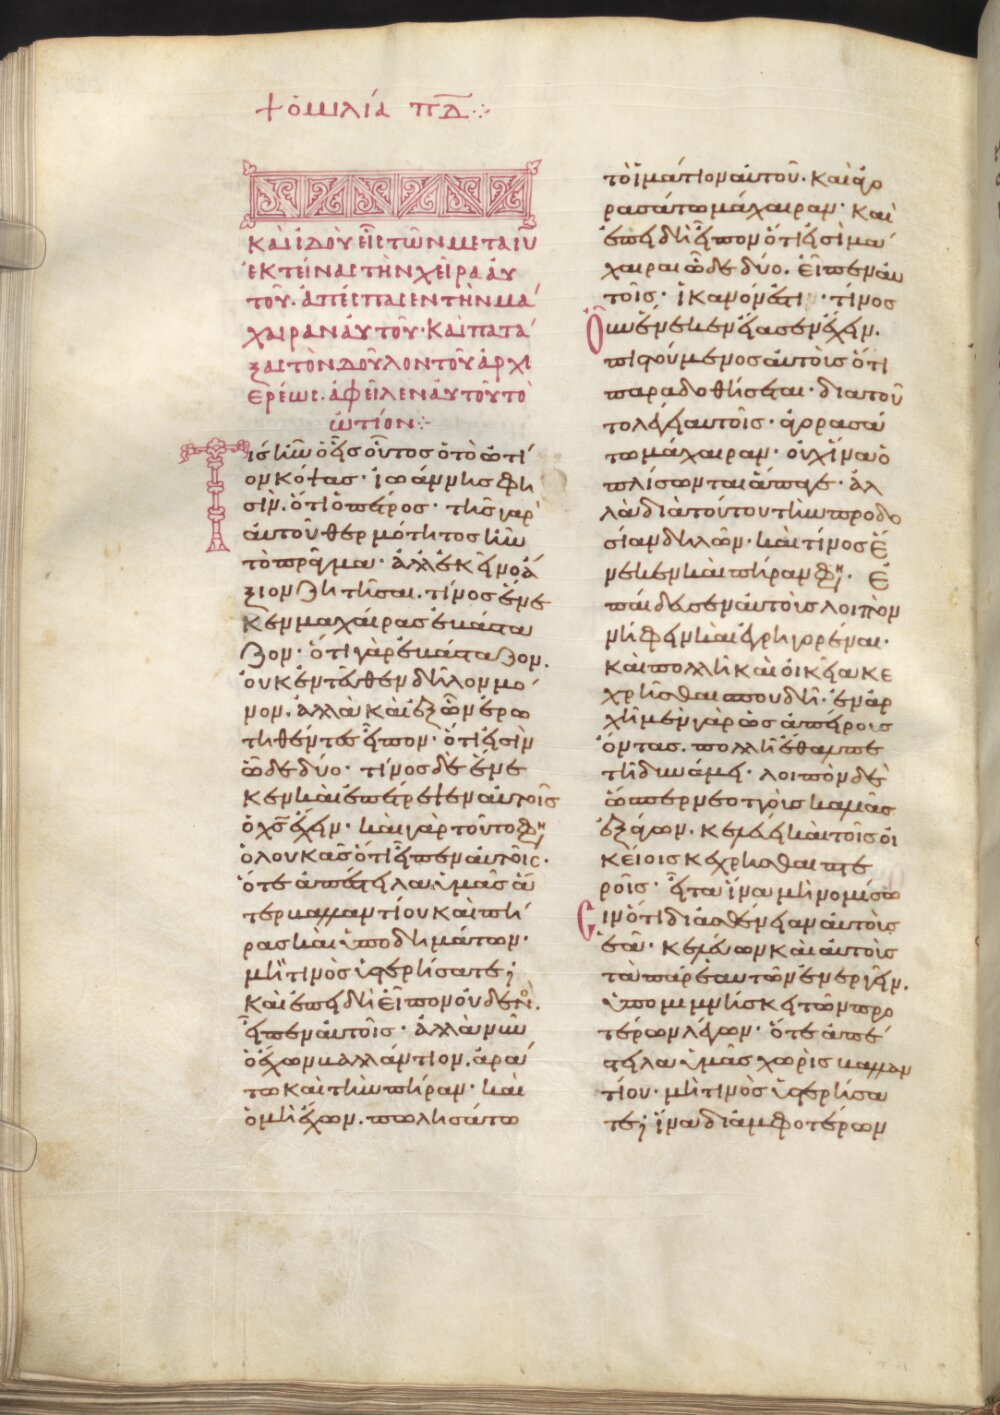 + ὁμιλία πδ ⁘
καὶ ἰδοὺ εἷς τῶν μετὰ ἰυ
ἐκτείνας τὴν χεῖρα αὐ
τοῦ. ἀπέσπασεν τὴν μά
χαιραν αὐτοῦ· καὶ πατά
ξας τὸν δοῦλον τοῦ ἀρχι
ερέως. ἀφεῖλεν αὐτοῦ τὸ
ὠτίον⁘
Τίς ἦν ὁ εἷς οὗτος ὁ τὸ ὠτί
ον κόψας· ἰωάννης φη
σὶν. ὅτι ὁ πέτρος· τῆς γὰρ
αὐτοῦ θερμότητος ἦν
τὸ πρᾶγμα· ἀλλ' ἐκεῖνο ἄ
ξιον ζητῆσαι. τίνος ἕνε
κεν μαχαίρας ἐβάστα
ζον· ὅτι γὰρ ἐβάσταζον.
οὐκ ἐντεῦθεν δῆλον μό
νον. ἀλλὰ καὶ ἐξ ὧν ἐρω
τηθέντες εἶπον· ὅτι εἰσὶν
ὧδε δύο· τίνος δὲ ἕνε
κεν καὶ ἐπέτρεψεν αὐτοῖς
ὁ χς ἔχειν· καὶ γὰρ τοῦτο φη
ὁ λουκᾶς ὅτι εἶπεν αὐτοῖς·
ὅτε ἀπέστειλα ὑμᾶς ἄ
τερ βαλλαντίου καὶ πή
ρας καὶ ὑποδημάτων·
μή τινος ὑστερήσατε;
καὶ ἐπειδὴ εἶπον οὐδενός.
εἶπεν αὐτοῖς· ἀλλὰ νῦν
ὁ ἔχων βαλλάντιον. ἀρά
τω καὶ τὴν πήραν· καὶ
ὁ μὴ ἔχων. πωλησάτω
τὸ ἱμάτιον αὐτοῦ. καὶ ἀγο
ρασάτω μάχαιραν· καὶ
ἐπειδὴ εἶπον ὅτι εἰσὶ μά
χαιραι ὧδε δύο. εἶπεν αὐ
τοῖς· ἱκανόν ἐστι· τίνος
Οὖν ἕνεκεν εἴασεν ἔχειν.
πιστούμενος αὐτοὺς ὅτι
παραδοθήσεται· διὰ τοῦ
το λέγει αὐτοῖς· ἀγορασά
τω μάχαιραν· οὐχ ἵνα ὁ
πλίσωνται ἄπαγε· ἀλ
λὰ διὰ τούτου τὴν προδο
σίαν δηλῶν· καὶ τίνος ἕ
νεκεν καὶ πήραν φη· ἐ
παίδευσεν αὐτοὺς λοιπὸν
νήφειν καὶ ἐγρηγορέναι·
καὶ πολλῆ καὶ οἰκεία κε
χρῆσθαι σπουδῆ· ἐν ἀρ
χῆ μὲν γὰρ ὡς ἀπείρους
ὄντας. πολλῆ ἔθαλπε
τῆ δυνάμει· λοιπὸν δὲ
ὥσπερ νεοττοὺς καλιᾶς
ἐξάγων. κελεύει καὶ τοῖς οἰ
κείοις κεχρῆσθαι πτε
ροῖς· εἶτα ἵνα μὴ νομίσω
Σιν ὅτι δι' ἀσθένειαν αὐτοὺς
ἐᾶ· κελεύων καὶ αὐτοὺς
τὰ παρ' ἑαυτῶν ἐνεργεῖν.
ὑπομιμνήσκει τῶν προ
τέρων λέγων· ὅτε ἀπέ
στειλα ὑμᾶς χωρὶς βαλλαν
τίου· μή τινος ὑστερήσα
τε; ἵνα δι' ἀμφοτέρων